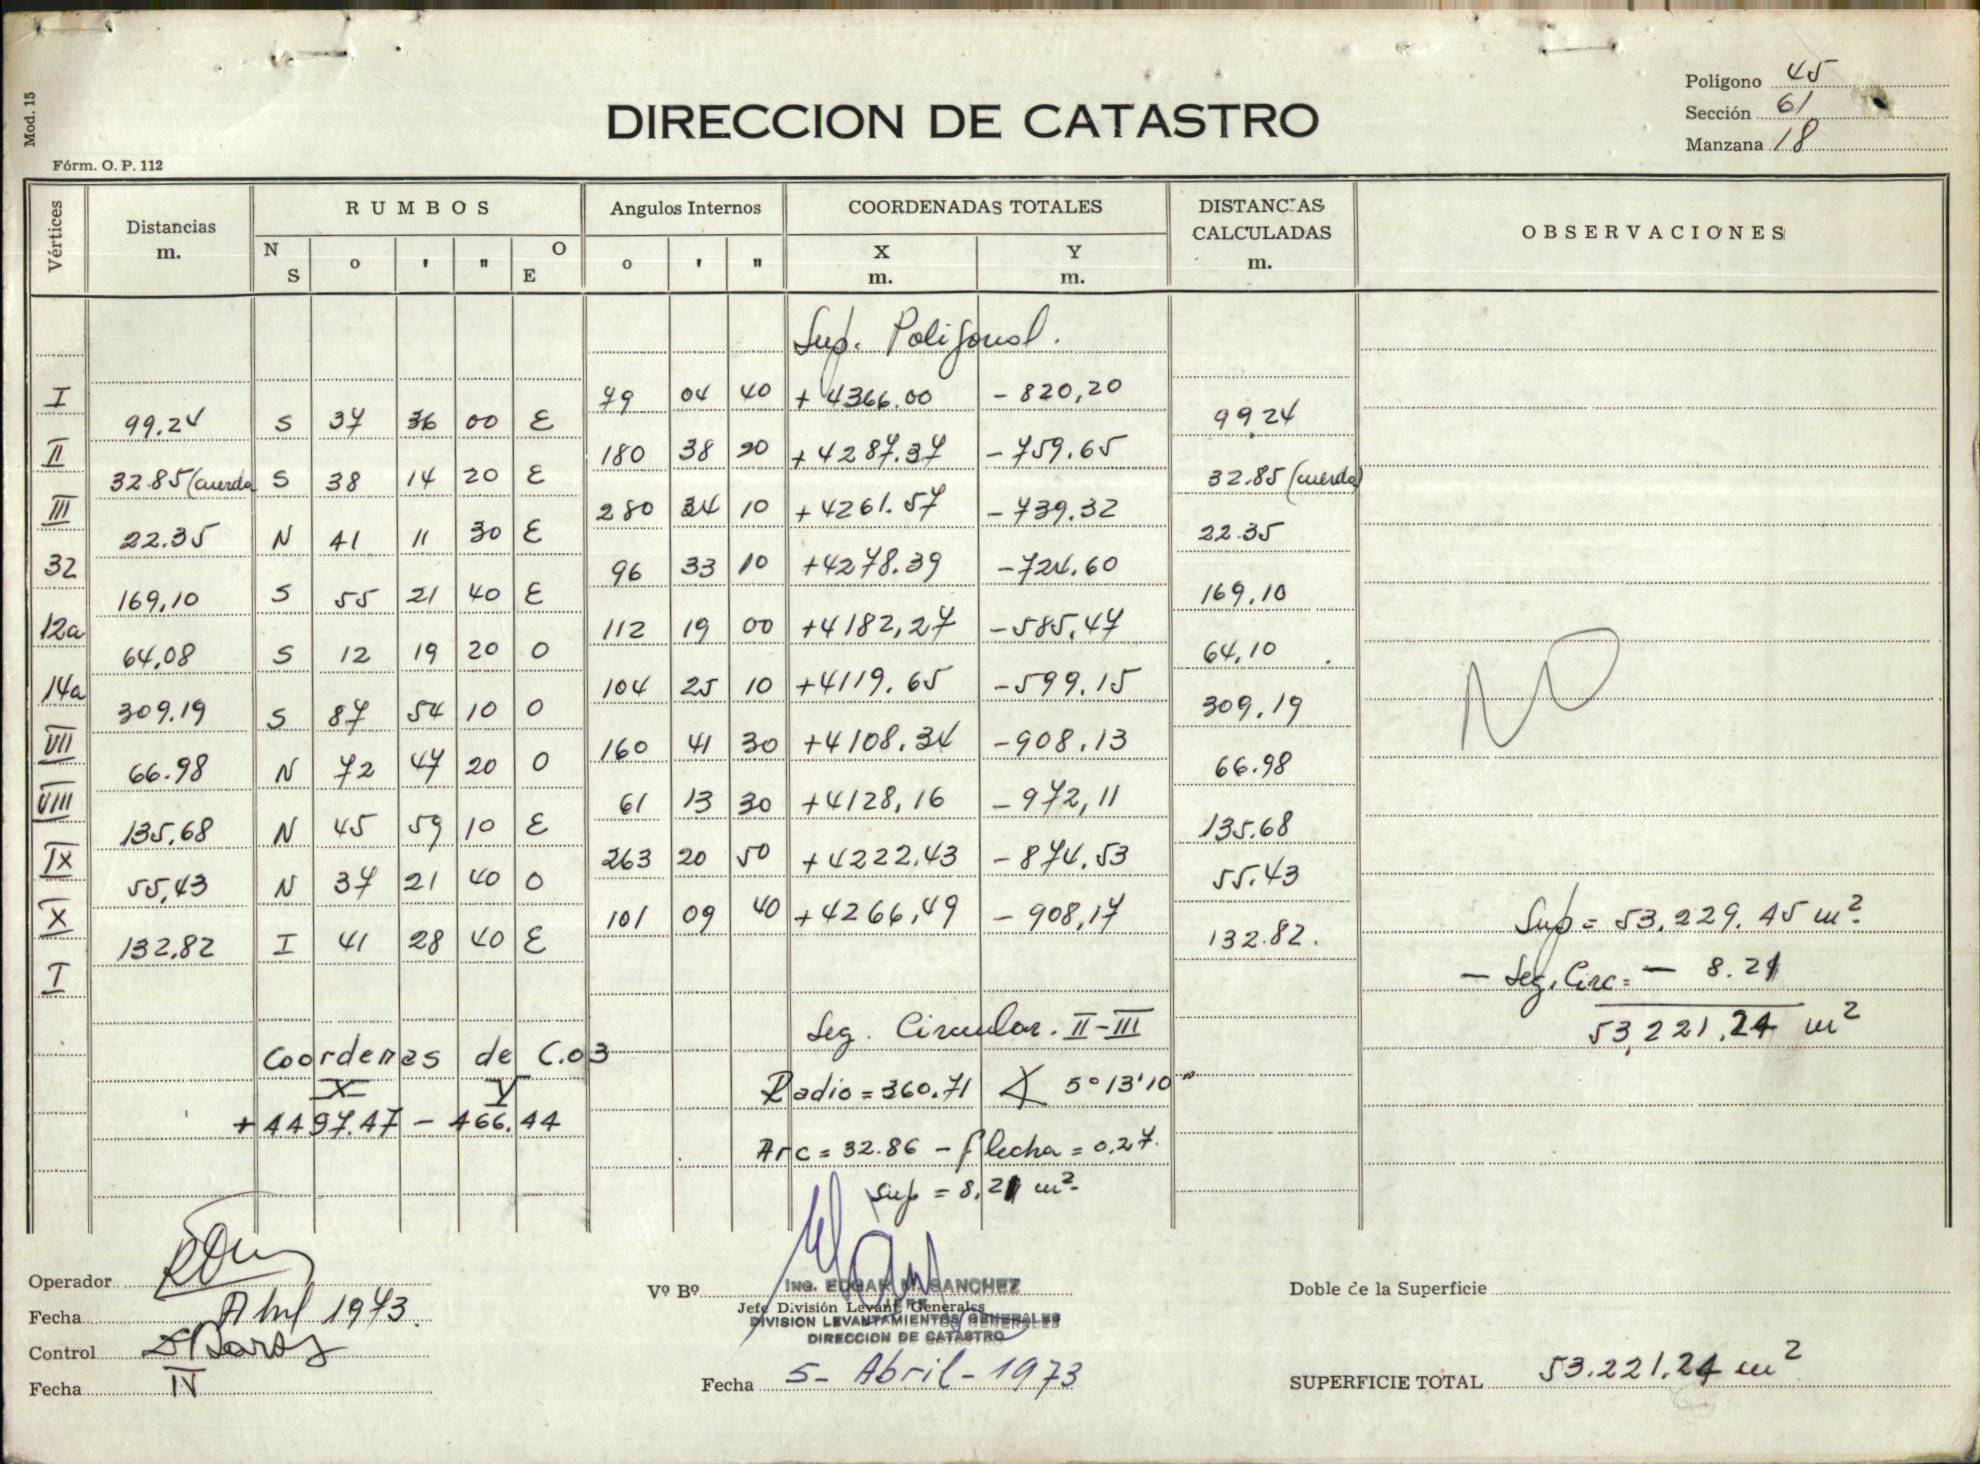 Mod. 15
Fórm. O. P. 112
DIRECCION DE CATASTRO
Polígono 45
Sección 61
Manzana 18
Vértices Distancias m. RUMBOS N S o ' " O E Angulos Internos o ' " COORDENADAS TOTALES X m. Y m. DISTANCIAS CALCULADAS m. OBSERVACIONES
Sup. Poligonal.
I 79 04 40 + 4366.00 - 820,20
99.24 S 37 36 00 E 99.24
II 180 38 20 + 4287.37 - 759.65
32.85 (cuerda S 38 14 20 E 32.85 (cuerda)
III 280 34 10 + 4261.57 - 739.32
22.35 N 41 11 30 E 22.35
32 96 33 10 +4278.39 - 724.60
169,10 S 55 21 40 E 169,10
12a 112 19 00 +4182,27 - 585,47
64,08 S 12 19 20 O 64,10
14a 104 25 10 +4119.65 - 599.15
309.19 S 87 54 10 O 309,19
VII 160 41 30 +4108.34 - 908.13
66.98 N 72 47 20 O 66.98
VIII 61 13 30 +4128,16 - 972,11
135,68 N 45 59 10 E 135.68
IX 263 20 50 +4222.43 - 874.53
55,43 N 37 21 40 O 55.43
X 101 09 40 +4266,49 - 908,17
132,82 I 41 28 40 E 132.82.
I
Sup = 53,229.45 m2.
- Seg. Circ = - 8.21
53,221,24 m2
Seg. Circular. II-III
Coordenas de C.03
X Y
+ 4497.47 - 466.44
Radio = 360.71 ∡ 5°13'10"
Arc = 32.86 - flecha = 0.27.
Sup = 8,21 m2.
NO
Operador
Fecha Abril 1973.
Control
Fecha IV
Vº Bº
ING. EDGAR M. SANCHEZ
JEFE
Jefe División Levant. Generales
DIVISION LEVANTAMIENTOS GENERALES
DIRECCION DE CATASTRO
Fecha 5- Abril - 1973
Doble de la Superficie
SUPERFICIE TOTAL 53.221.24 m2